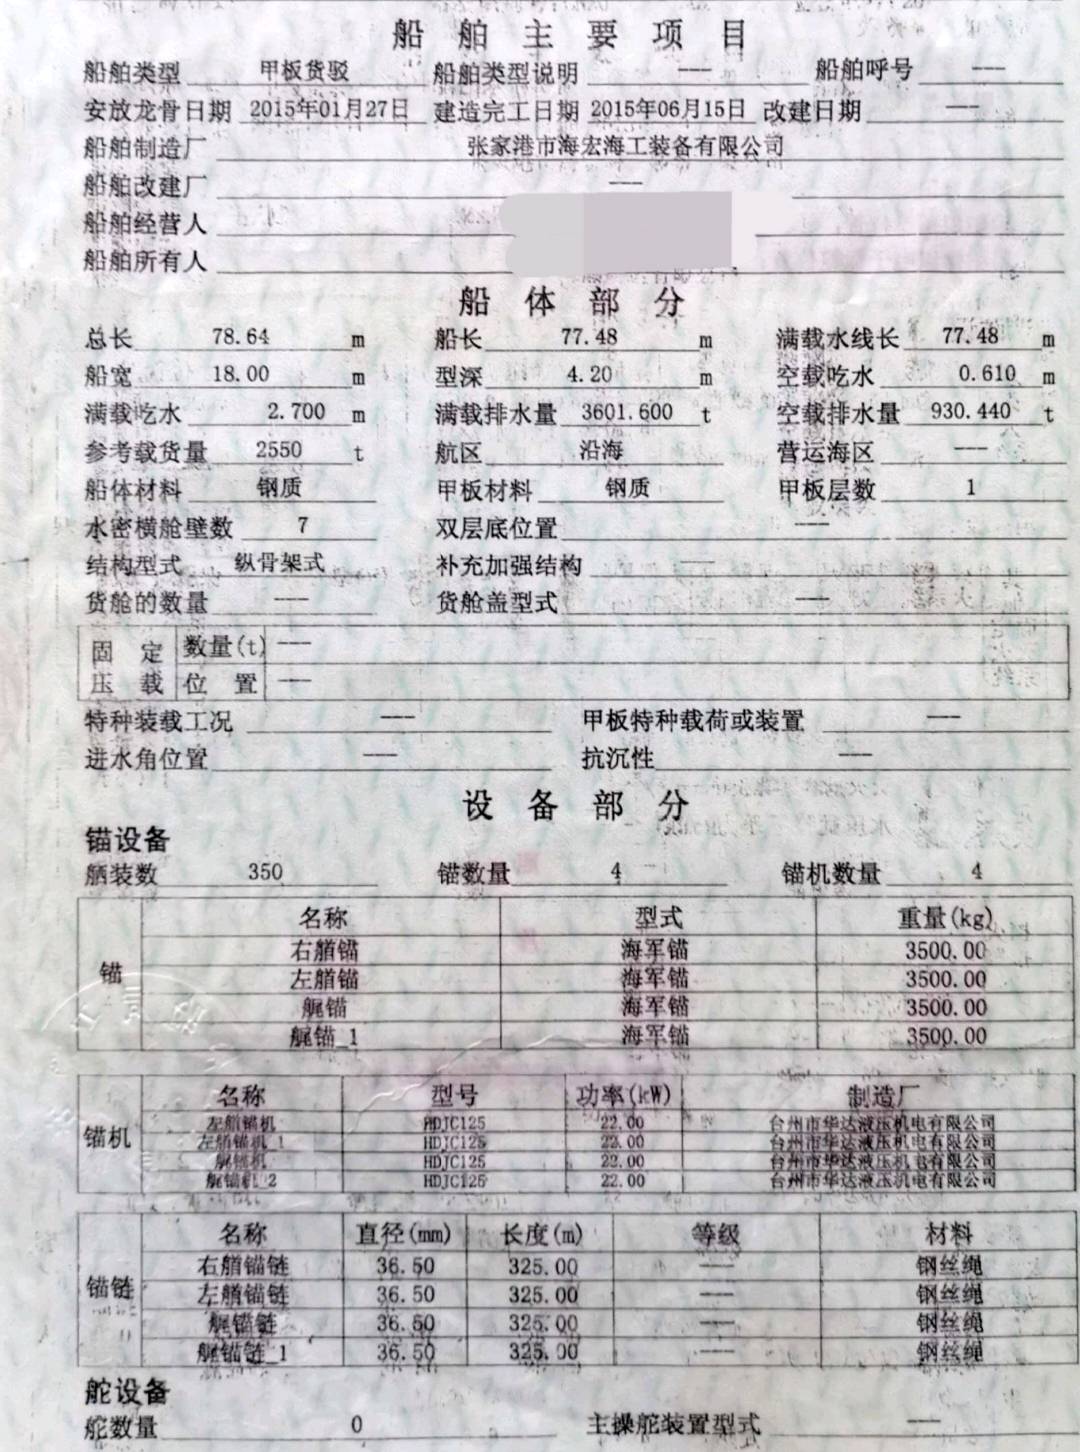 船舶主要项目
船舶类型 甲板货驳 船舶类型说明 --- 船舶呼号 ---
安放龙骨日期 2015年01月27日 建造完工日期 2015年06月15日 改建日期 ---
船舶制造厂 张家港市海宏海工装备有限公司
船舶改建厂 ---
船舶经营人
船舶所有人
船体部分
总长 78.64 m 船长 77.48 m 满载水线长 77.48 m
船宽 18.00 m 型深 4.20 m 空载吃水 0.610 m
满载吃水 2.700 m 满载排水量 3601.600 t 空载排水量 930.440 t
参考载货量 2550 t 航区 沿海 营运海区 ---
船体材料 钢质 甲板材料 钢质 甲板层数 1
水密横舱壁数 7 双层底位置 ---
结构型式 纵骨架式 补充加强结构
货舱的数量 --- 货舱盖型式 ---
固定 数量(t) ---
压载 位置 ---
特种装载工况 --- 甲板特种载荷或装置 ---
进水角位置 --- 抗沉性 ---
设备部分
锚设备
舾装数 350 锚数量 4 锚机数量 4
名称 型式 重量(kg)
右艏锚 海军锚 3500.00
锚
左艏锚 海军锚 3500.00
艉锚 海军锚 3500.00
艉锚_1 海军锚 3500.00
名称 型号 功率(kW) 制造厂
左艏锚机 HDJC125 22.00 台州市华达液压机电有限公司
锚机
左艏锚机_1 HDJC125 22.00 台州市华达液压机电有限公司
艉锚机 HDJC125 22.00 台州市华达液压机电有限公司
艉锚机_2 HDJC125 22.00 台州市华达液压机电有限公司
名称 直径(mm) 长度(m) 等级 材料
右艏锚链 36.50 325.00 --- 钢丝绳
锚链
左艏锚链 36.50 325.00 --- 钢丝绳
艉锚链 36.50 325.00 --- 钢丝绳
艉锚链_1 36.50 325.00 --- 钢丝绳
舵设备
舵数量 0 主操舵装置型式 ---